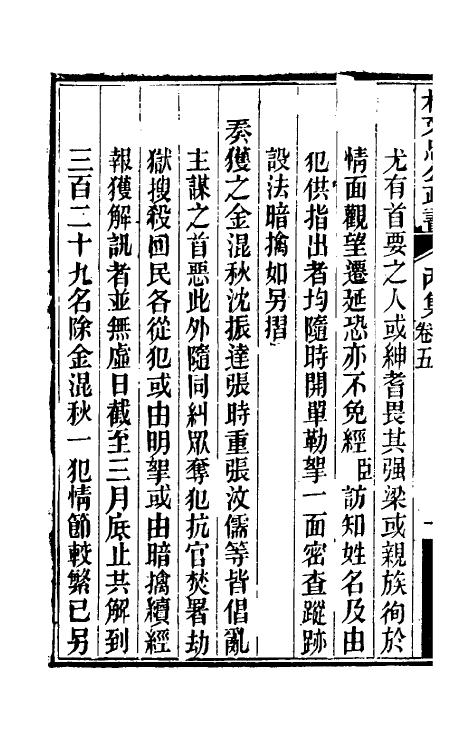 林文忠公政書 丙集卷五
尤有首要之人或紳耆畏其强梁或親族徇於
情面觀望遷延恐亦不免經臣訪知姓名及由
犯供指出者均隨時開單勒拏一面密查蹤跡
設法暗擒如另摺
奏獲之金混秋沈振達張時重張汶儒等皆倡亂
主謀之首惡此外隨同糾眾奪犯抗官焚署劫
獄搜殺回民各從犯或由明拏或由暗擒續經
報獲解訊者並無虛日截至三月底止共解到
三百二十九名除金混秋一犯情節較繁已另